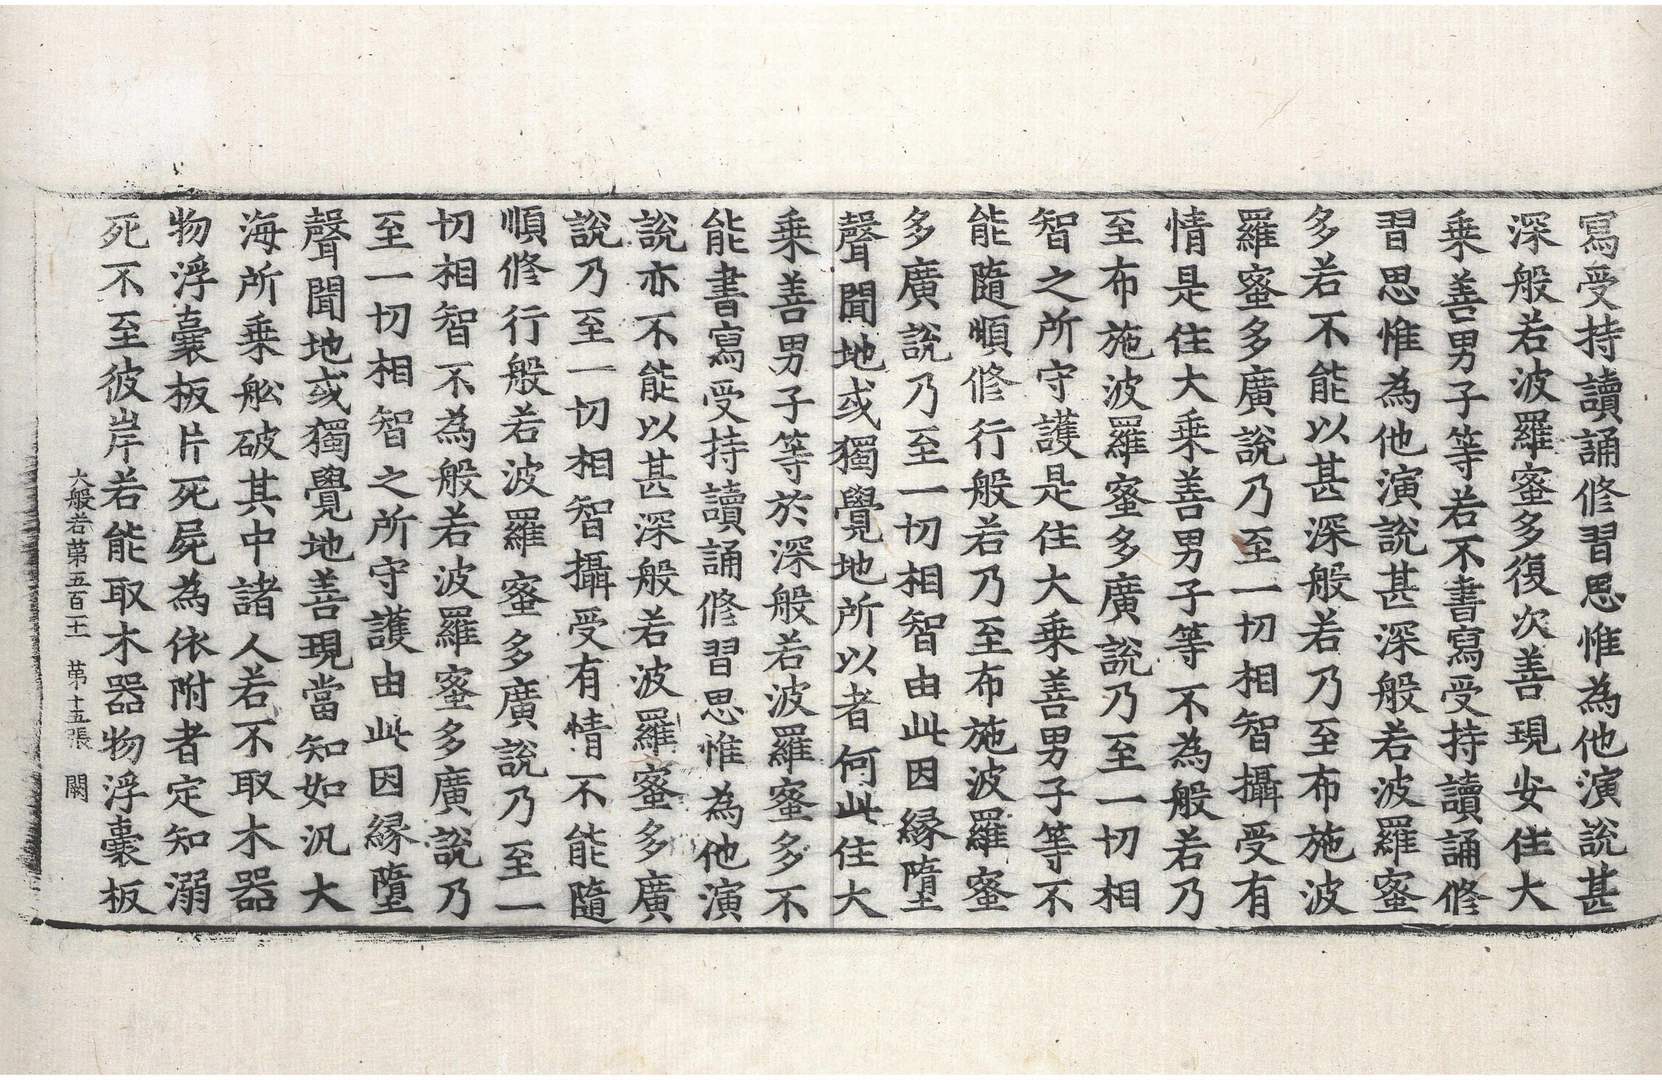 寫受持讀誦修習思惟為他演說甚
深般若波羅蜜多復次善現安住大
乘善男子等若不書寫受持讀誦修
習思惟為他演說甚深般若波羅蜜
多若不能以甚深般若乃至布施波
羅蜜多廣說乃至一切相智攝受有
情是住大乘善男子等不為般若乃
至布施波羅蜜多廣說乃至一切相
智之所守護是住大乘善男子等不
能隨順修行般若乃至布施波羅蜜
多廣說乃至一切相智由此因緣墮
聲聞地或獨覺地所以者何此住大
乘善男子等於深般若波羅蜜多不
能書寫受持讀誦修習思惟為他演
說亦不能以甚深般若波羅蜜多廣
說乃至一切相智攝受有情不能隨
順修行般若波羅蜜多廣說乃至一
切相智不為般若波羅蜜多廣說乃
至一切相智之所守護由此因緣墮
聲聞地或獨覺地善現當知如汎大
海所乘舩破其中諸人若不取木器
物浮囊板片死屍為依附者定知溺
死不至彼岸若能取木器物浮囊板
大般若第五百十一 第十五張 闕